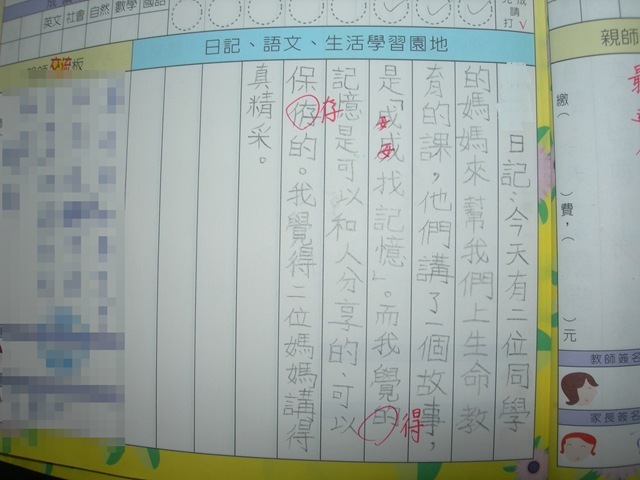 英文 社會 自然 數學 國語
請打√
日記、語文、生活學習園地
交流板
日記:今天有二位同學
的媽媽來幫我們上生命教
育的課,他們講了一個故事,
是「戓戓找記憶」。而我覺的
每每
得
記憶是可以和人分享的、可以
保存的。我覺得二位媽媽講得
存
真精采。
親師
繳( )費,( )元
教師簽名
家長簽名